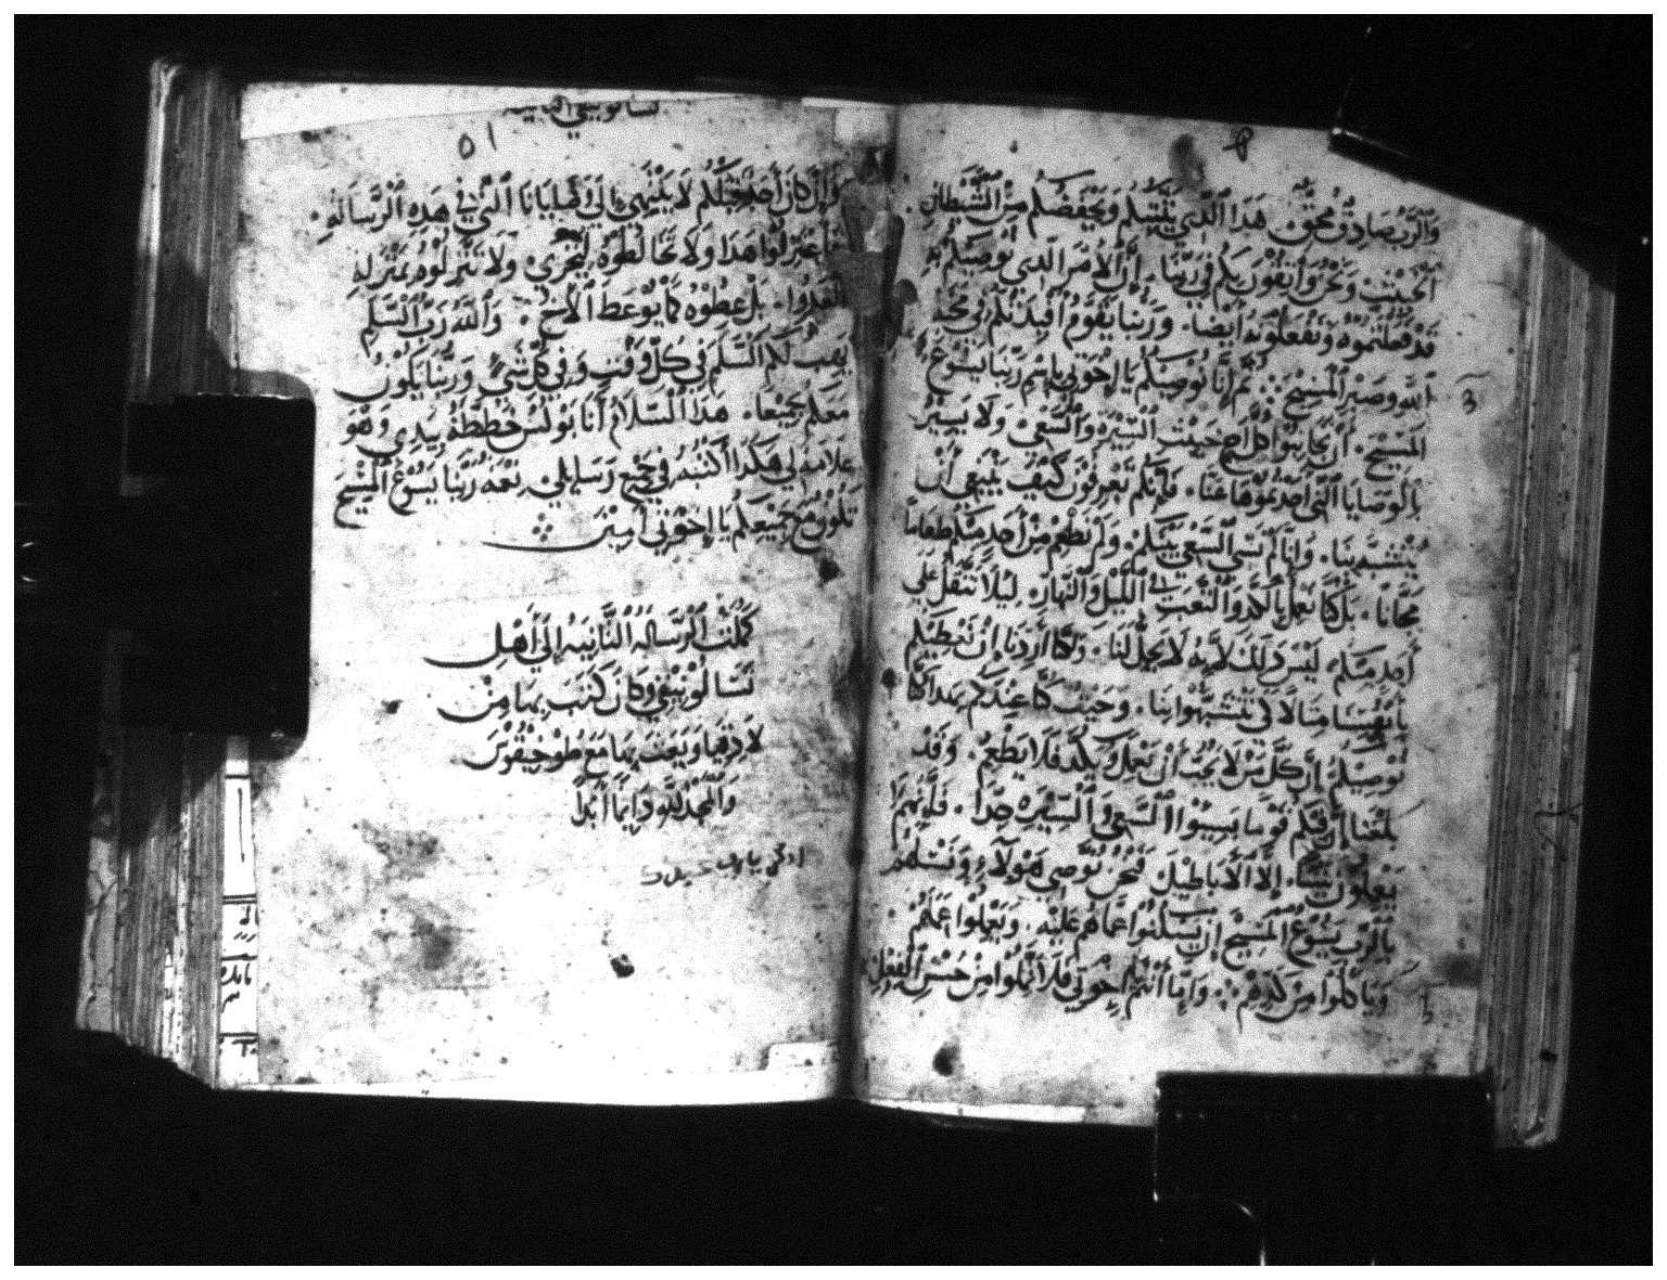 والرب صادق محق هذا الذي يثبتكم ويحفضكم من الشيطان
الخبيث ونحن واثقون بكم في ربنا إن الأمر الذي نوصيكم به
قد فعلتموه وتفعلونه أيضا وربنا يقوم افيدتكم في محبة
الله وصبر المسيح ثم إنا نوصيكم يا إخوتي باسم ربنا يسوع
المسيح أن تجانبوا كل أخ خبيث السيرة والسعي ولا يسير
بالوصايا التي اخذتموها عنا فإنكم تعرفون كيف ينبغي أن
يتشبه بنا وإنا لم نسي السعي بينكم ولم نطعم من أحد منكم طعاما
مجانا بل كنا نعمل بالكد والتعب في الليل والنهار ليلا نثقل علي
أحد منكم ليس ذلك لأنه لا يحل لنا ولكنا أردنا أن نعطيكم
بأنفسنا مثالا لكي تتشبهوا بنا وحيث كنا عندكم بهذا كنا
نوصيكم إن كل من لا يحب أن يعمل بكد فلا يطعم وقد
بلغنا أن فيكم قوما يسيوا السعي والسيرة جدا
يعملون شيئا إلا الأباطيل فنحن نوصي هولاء ونسلهم
بالرب يسوع المسيح إن يسكنوا عما هم عليه ويعملوا عملهم
وياكلوا من كدهم وإما أنتم إخوتي فلا تملوا من حسن الفعل
٥١
وإن كان أحد منكم لا ينتهي إلي وصايانا التي في هذه الرسالة
فاعتزلوا هذا ولا تخالطوه ليخزي ولا تنزلوه بمنزلة
العدوا بل عظوه كما يوعظ الأخ والله رب السلم
يهب لكم السلم في كل وقت وفي كل شي وربنا يكون
معكم جميعا هذا السلام أنا بولس خططته بيدي وهو
علامة لي هكذا أكتبه في جميع رسايلي نعمة ربنا يسوع المسيح
تكون مع جميعكم يا إخوتي امين
كملت الرسالة الثانية إلي أهل
تسالونيقي وكان كتب بها من
لادقيا وبعث بها مع طوخيقوس
والمجد لله دايما أبدا
اذكر يارب عبدك